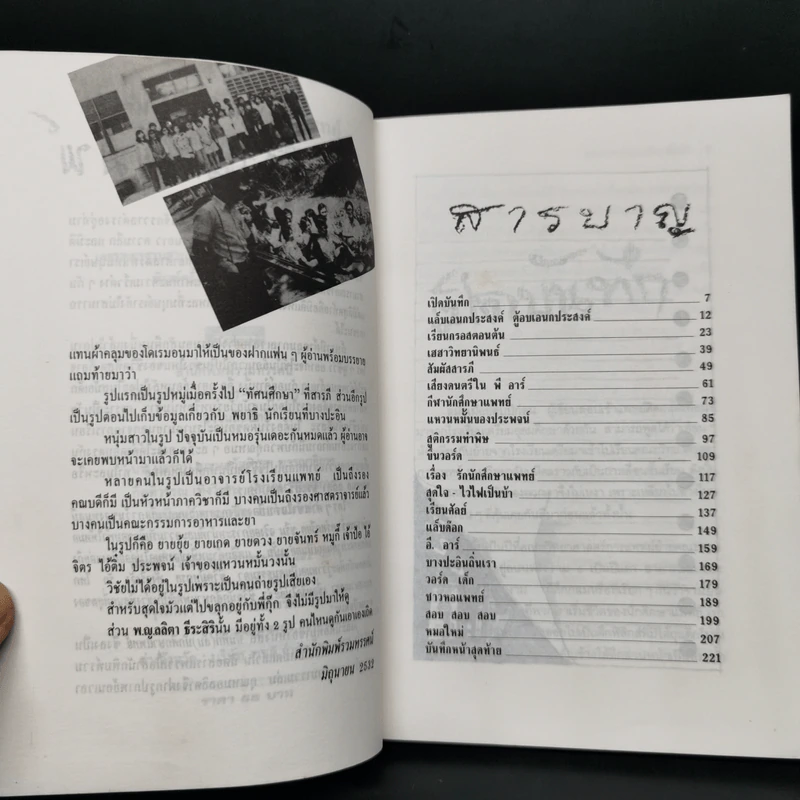 แทนผ้าคลุมของโดเรมอนมาให้เป็นของฝากแฟน ๆ ผู้อ่านพร้อมบรรยาย
แถมท้ายมาว่า
รูปแรกเป็นรูปหมู่เมื่อครั้งไป “ทัศนศึกษา” ที่สารภี ส่วนอีกรูป
เป็นรูปตอนไปเก็บข้อมูลเกี่ยวกับ พยาธิ นักเรียนที่บางปะอิน
หนุ่มสาวในรูป ปัจจุบันเป็นหมอรุ่นเดอะกันหมดแล้ว ผู้อ่านอาจ
จะเคยพบหน้ามาแล้วก็ได้
หลายคนในรูปเป็นอาจารย์โรงเรียนแพทย์ เป็นถึงรอง
คณบดีก็มี เป็นหัวหน้าภาควิชาก็มี บางคนเป็นถึงรองศาสตราจารย์แล้ว
บางคนเป็นคณะกรรมการอาหารและยา
ในรูปก็คือ ยายยุ้ย ยายเกด ยายดวง ยายจันทร์ หมูกี้ เจ้าป้อ ไอ้
จิตร ไอ้ติ๋ม ประพจน์ เจ้าของแหวนหมั้นวงนั้น
วิชัยไม่ได้อยู่ในรูปเพราะเป็นคนถ่ายรูปเสียเอง
สำหรับสุดใจมัวแต่ไปขลุกอยู่กับพี่กุ๊ก จึงไม่มีรูปมาให้ดู
ส่วน พ.ญ.ลลิตา ธีระสิรินั้น มีอยู่ทั้ง 2 รูป คนไหนดูกันเอาเองเถิด
สำนักพิมพ์รวมทรรศน์
มิถุนายน 2532
สารบาญ
เปิดบันทึก 7
แล็บเอนกประสงค์ ตู้อบเอนกประสงค์ 12
เรียนกรอสตอนดัน 23
เสสาวิทยานิพนธ์ 39
สัมผัสสารภี 49
เสียงดนตรีใน พี อาร์ 61
กีฬานักศึกษาแพทย์ 73
แหวนหมั้นของประพจน์ 85
สูติกรรมทำพิษ 97
ขึ้นวอร์ด 109
เรื่อง รักนักศึกษาแพทย์ 117
สุดใจ - ไวไฟเป็นบ้า 127
เรียนศัลย์ 137
แล็บด๊อก 149
อี. อาร์ 159
บางปะอินถิ่นเรา 169
วอร์ด เด็ก 179
ชาวหอแพทย์ 189
สอบ สอบ สอบ 199
หมอใหม่ 207
บันทึกหน้าสุดท้าย 221